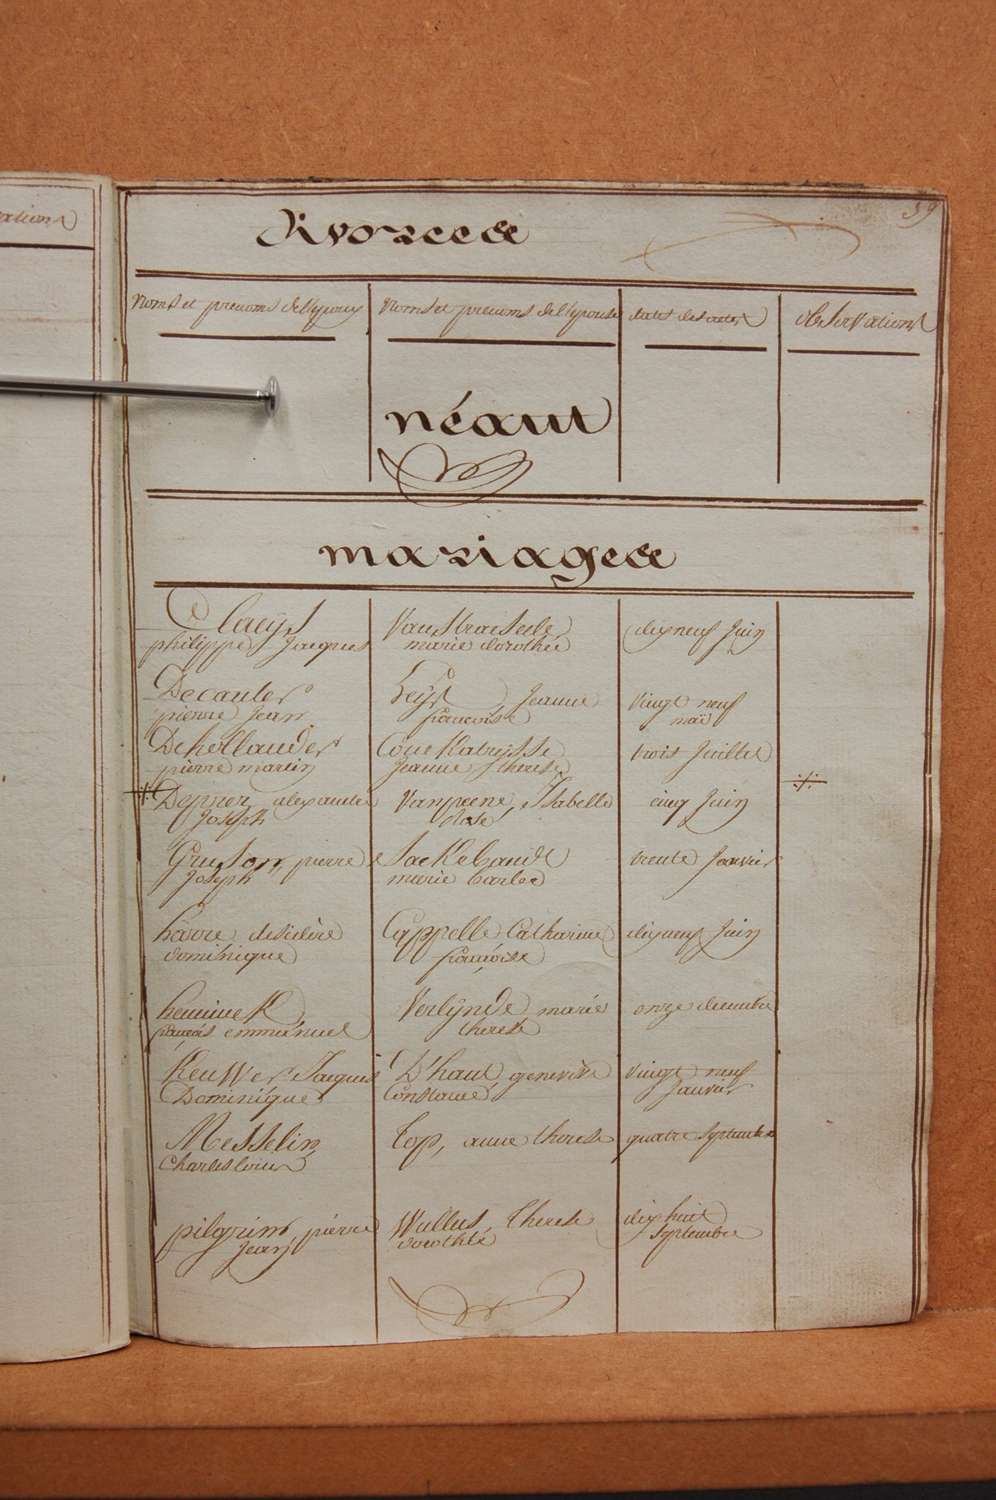 59
divorcees
noms et prenoms de l'epoux noms et prenoms de l'epouse dates des actes observations
néant
mariages
Claeys Van Straesele dix neuf Juin
philippe Jacques marie dorothée
Decauter Leys Jeanne vingt neuf
pierre Jean francoise mai
Dehollander trois Juillet
pierre martin Jeanne therese
Depner alexandre Vanpeene, Isabelle cinq Juin
Joseph Rose
Gruson, pierre trente Janvier
Joseph marie barbe
havre desidere Cappelle Catharine dix neuf Juin
dominique françoise
henninck Verlynde marie onze decembre
françois emmanuel therese
Keuwer Jacques D'haut genevieve vingt neuf
Dominique Constance Janvier
Messelin Top, anne therese quatre septembre
Charles louis
pilgrim, pierre Wullus, therese dix huit
Jean dorothée septembre